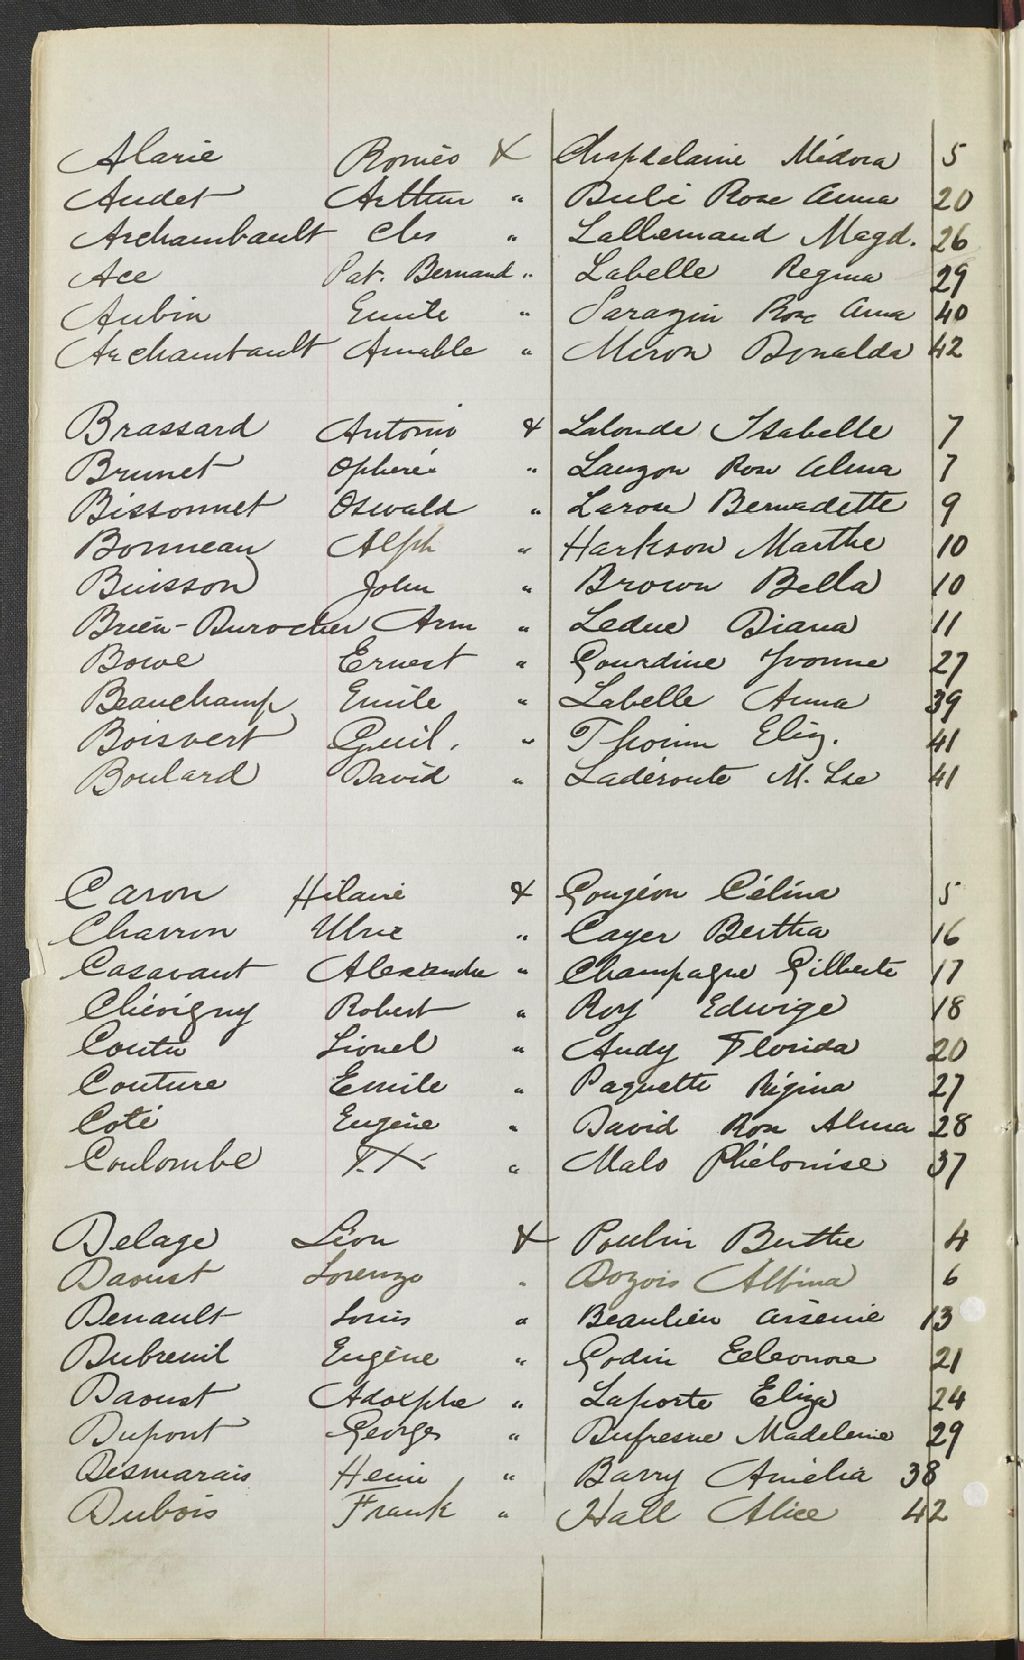 Alarie Roméo & Chapdelaine Médora 5
Audet Arthur " Bubé Rose Anna 20
Archambault Chs " Lallemand Magd. 26
Ace Pat. Bernard " Labelle Regina 29
Aubin Emile " Sarazin Rose Anna 40
Archambault Amable " Miron Donalda 42
Brassard Antonio & Lalonde Isabelle 7
Brunet Ophéré " Lauzon Rose Alma 7
Bissonnet Oswald " Larose Bernadette 9
Bonneau Alph " Harkson Marthe 10
Buisson John " Brown Bella 10
Brien-Durocher Arm " Leduc Diana 11
Bowe Ernest " Gourdine Yvonne 27
Beauchamp Emile " Labelle Anna 39
Boisvert Guil. " Thouin Eliz. 41
Boulard David " Ladéroute M. Lse 41
Caron Hilaire & Gougéon Célina 5
Charron Ulric " Cayer Bertha 16
Casavant Alexandre " Champagne Gilberte 17
Chévigny Robert " Roy Edwige 18
Coutu Lionel " Audy Florida 20
Couture Emile " Paquette Régina 27
Coté Eugène " David Rose Alma 28
Coulombe F.X. " Malo Philomise 37
Delage Léon & Poulin Berthe 4
Daoust Lorenzo " Dozois Albina 6
Denault Louis " Beaulieu Arsènie 13
Dubreuil Eugène " Godin Eeleonore 21
Daoust Adolphe " Laporte Eliza 24
Dupont Georges " Dufresne Madeleine 29
Desmarais Henri " Barry Amélia 38
Dubois Frank " Hall Alice 42